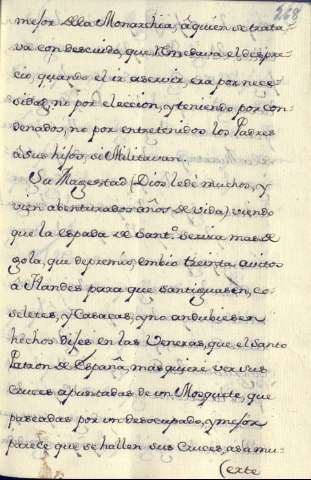 268
mejor de la Monarchia, â quien se trata-
va con descuido, que remedava el despre-
cio, quando el ir aservir, era por nece-
sidad, no por eleccion, y teniendo por con-
denados, no por entretenidos los Padres
â sus hijos, si Militavan.
Su Magestad (Dios le dê muchos, y
vien abenturados años de vida) viendo
que la espada de Santº servia mas de
gola, que de premio, embio treinta avitos
â Flandes para que santiguasen, co-
seletes, y Casacas, y no andubiesen
hechos dijes en las Veneras, que el Santo
Patron de España, mas quiere ver sus
Cruces apuntadas de un Mosquete, que
paseadas por un desocupado, y mejor
parece que se hallen sus Cruces asamu-
(erte